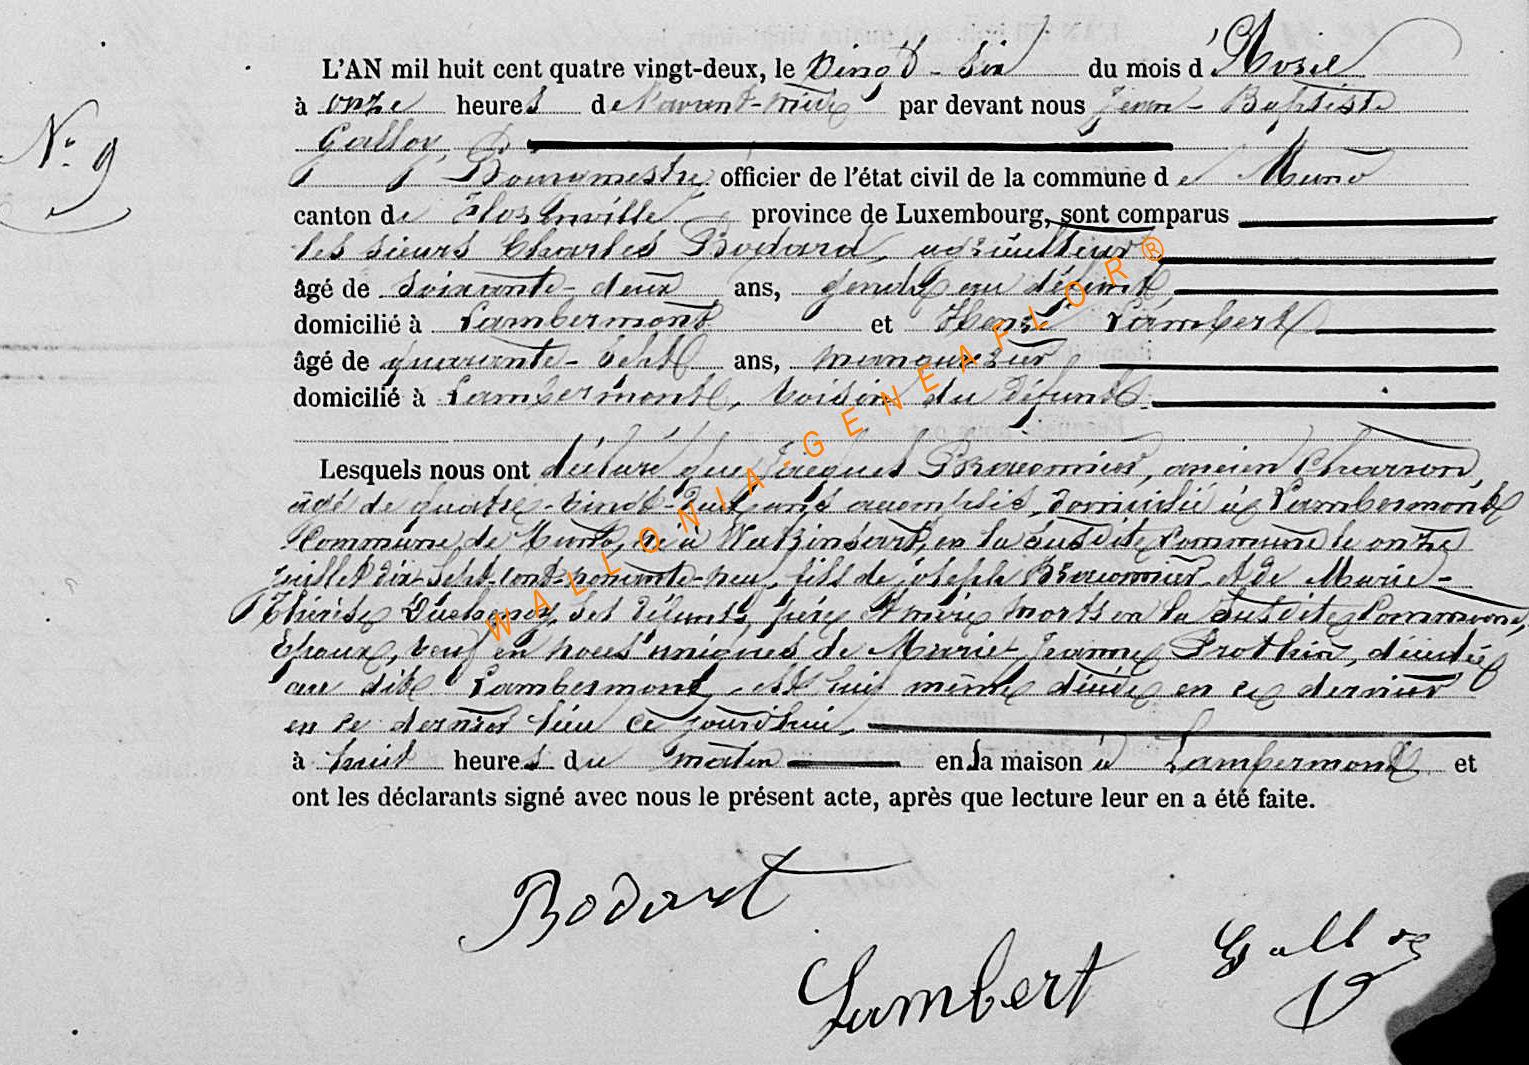 L'AN mil huit cent quatre vingt-deux, le vingt-six du mois d'Avril
à onze heures de l'avant-midi par devant nous Jean-Baptiste
N° 9
Galloy
Bourgmestre officier de l'état civil de la commune de Muno
canton de Florenville province de Luxembourg, sont comparus
les sieurs Charles Bodard, agriculteur
âgé de soixante-deux ans, gendre au défunt,
domicilié à Lambermont et Henri Lambert
âgé de quarante-sept ans, manoeuvrier
domicilié à Lambermont, voisin du défunt.
Lesquels nous ont déclaré que Jacques Braconnier, ancien charron,
âgé de quatre-vingt-deux ans accomplis, domicilié à Lambermont
Commune de Muno, né à Watrinsart, en la susdite Commune le onze
juillet dix-sept-cent-nonante-neuf, fils de Joseph Braconnier et de Marie-
Thérèse, des défunts, père et mère morts en la susdite Commune,
Epoux, veuf en noces uniques de Marie Jeanne Prothin, décédée
au dit Lambermont, est lui même décédé en ce dernier
en ce dernier lieu ce jourd'hui,
à huit heures du matin en la maison à Lambermont et
ont les déclarants signé avec nous le présent acte, après que lecture leur en a été faite.
Bodart
Lambert
Galloy
WALLONIA-GENEAFLOR®